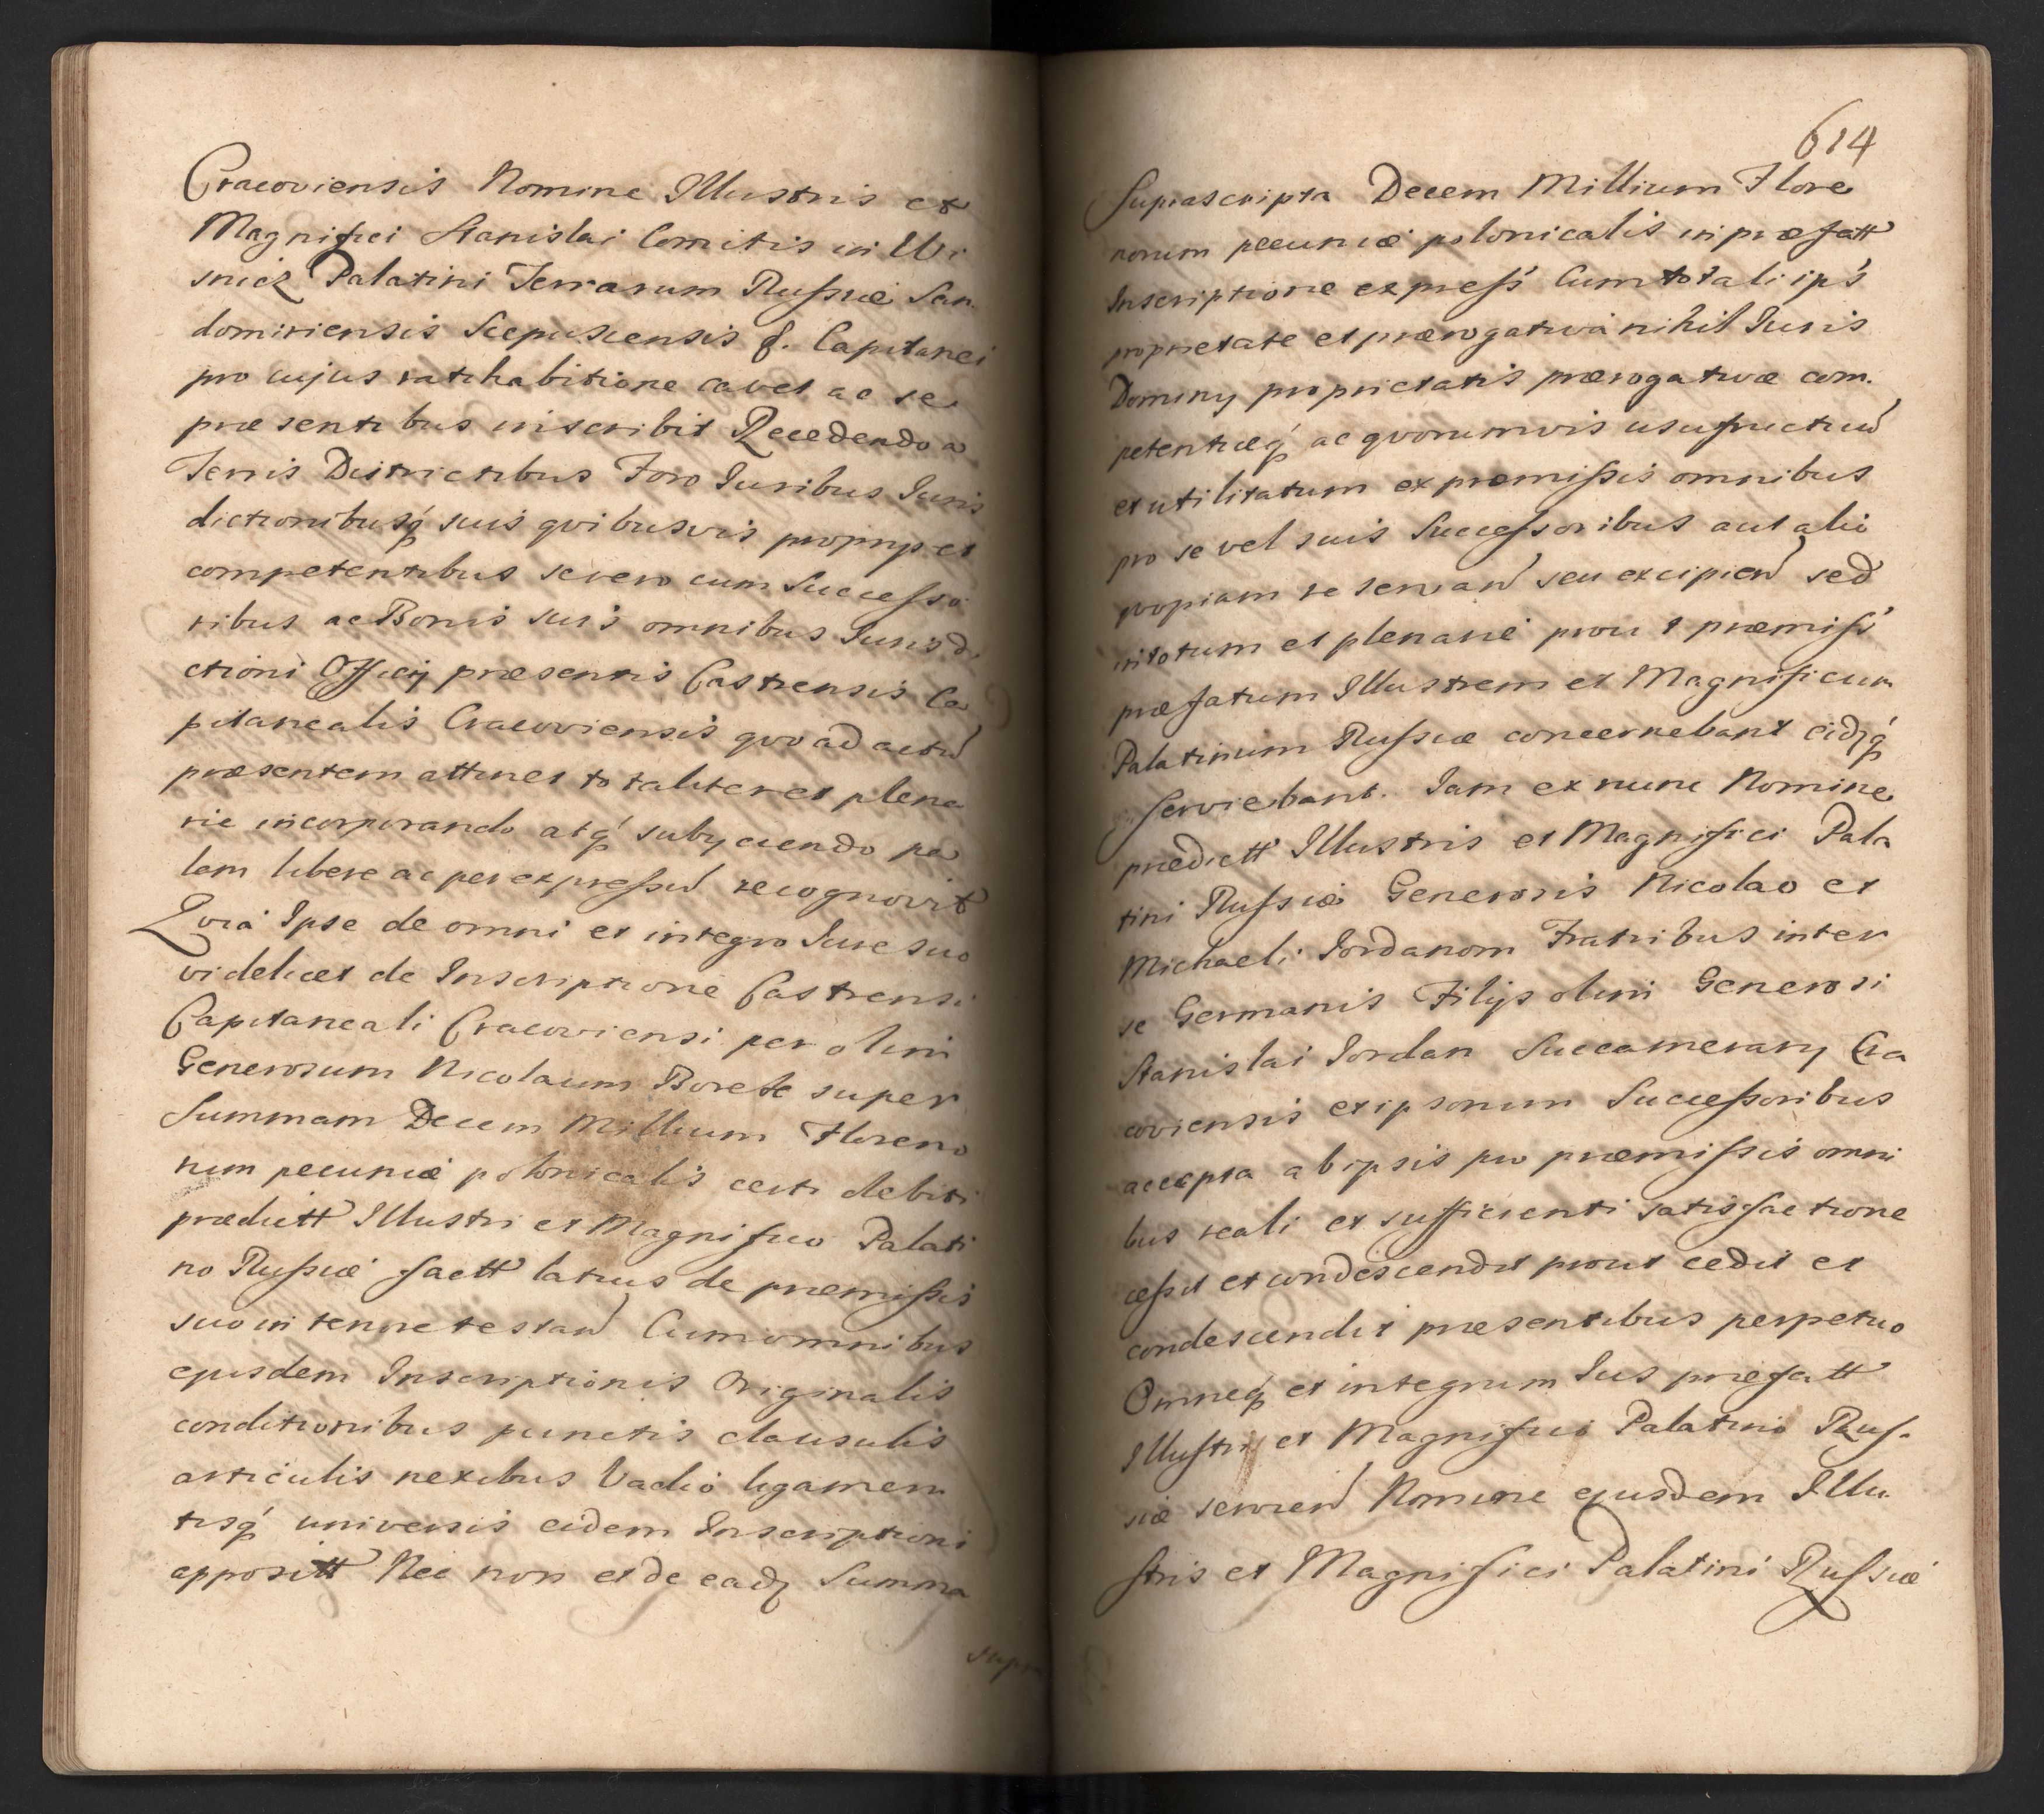 Cracoviensis Nomine Illustris et
Magnifici Stanislai Comitis in Wi
snicz Palatini Terrarum Russiæ San
domiriensis Scepusiensis &. Capitanei
pro cujus ratihabitione cavet ac se
præsentibus inscribit Recedendo a
Terris Districtibus Foro Iuribus Iuris
dictionibusq́ suis qvibusvis proprijs et
competentibus se vero cum Successo
ribus ac Bonis suis omnibus Iurisdi
ctioni Officij præsentis Castrensis Ca
pitanealis Cracoviensis qvo ad actu
præsentem attinet totaliter et plena
rie incorporando atq́ subijciendo pa
lam libere ac per expressu recognovit
Qvia Ipse de omni et integro Iure suo
videlicet de Inscriptione Castrensi
Capitaneali Cracoviensi per olim
Generosum Nicolaum Borek super
Summam Decem Millium Floreno
rum pecuniæ polonicalis certi debiti
prædictt Illustri et Magnifico Palati
no Russiæ factt latius de præmissis
suo in tenore testan Cum omnibus
ejusdem Inscriptionis Originalis
conditionibus punctis clausulis
articulis nexibus Vadio ligamen
tisq́ universis eidem Inscriptioni
appositt Nec non et de eadq Summa
supra
614
Suprascripta Decem Millium Flore
norum pecuniæ polonicalis in præfatt
Inscriptione express Cum totali ips
proprietate et prærogativa nihil Iuris
Dominij proprietatis prærogativæ com.
petentiæq́ ac qvorumvis usufructuu
et utilitatum ex præmissis omnibus
pro se vel suis Successoribus aut alio
qvopiam reservan seu excipien sed
in totum et plenarie prout præmiss
præfatum Illustrem et Magnificum
Palatinum Russiæ concernebant eidq́
serviebant. Iam ex nunc Nomine
prædictt Illustris et Magnifici Pala
tini Russiæ Generosis Nicolao et
Michaeli Iordanom Fratribus inter
se Germanis Filijs olim Generosi
Stanislai Iordan Succamerarij Cra
coviensis et ipsorum Successoribus
accepta ab ipsis pro præmissis omni
bus reali et sufficienti satisfactione
cessit et condescendit prout cedit et
condescendit præsentibus perpetuo
Omneq́ et integrum Ius præfatt
Illustri et Magnifico Palatino Rus-
siæ servien Nomine ejusdem Illu
stris et Magnifici Palatini Russiæ